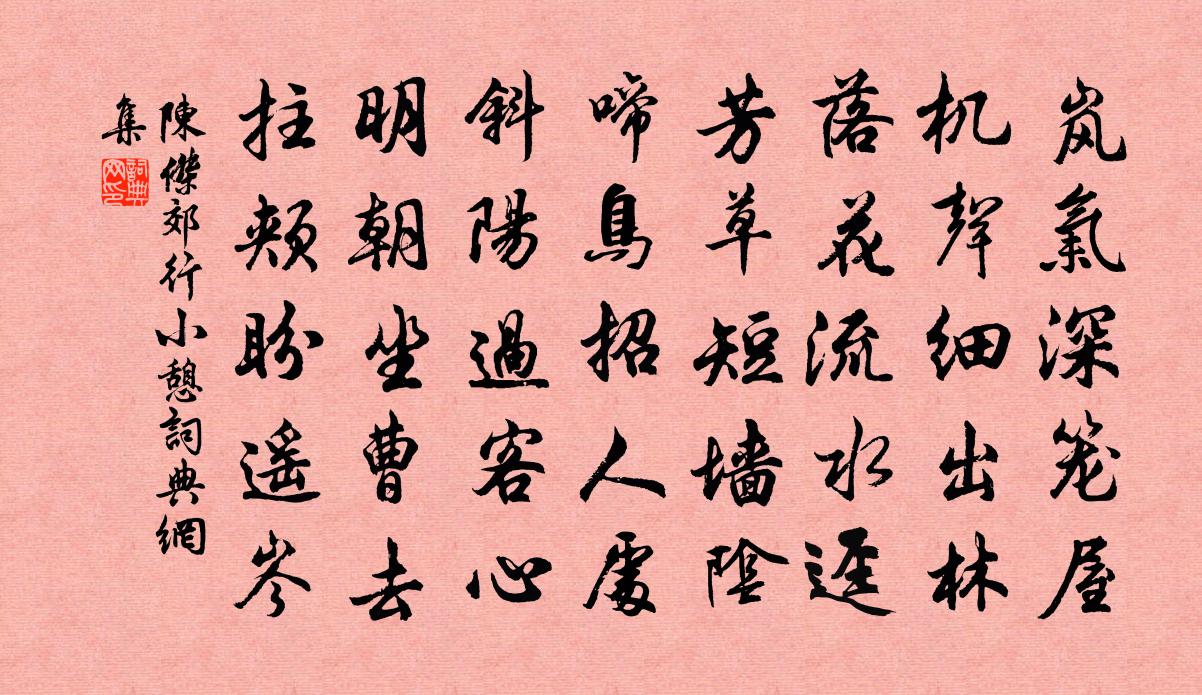 岚氣深笼屋
机聲细出林
落花流水逕
芳草短墙陰
啼鳥招人處
斜陽過客心
明朝坐曹去
拄頰盼遥岑
陳傑郊行小憩詞典網
集
詞典
网印